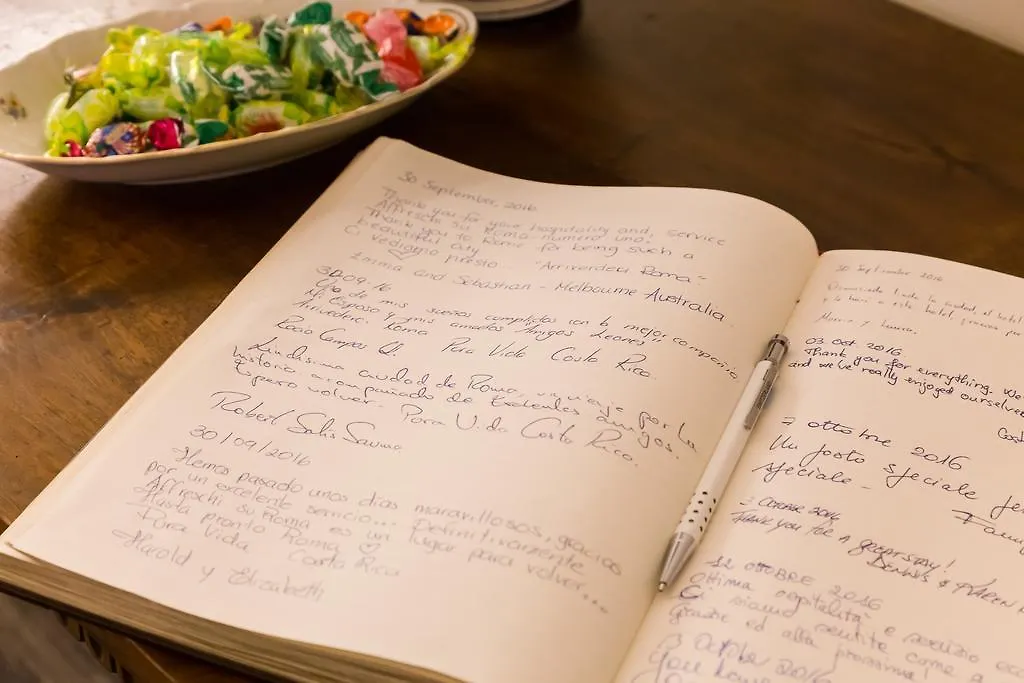 30 September, 2016
Thank you for your hospitality and, service
Affreschi su Roma numero uno.
Thank you to Rome for being such a
beautiful city
Ci vediamo presto... "Arrivederci Roma"
Emma and Sebastian - Melbourne Australia
30.09.16
de mis sueños cumplidos con la mejor compañia
Mi Esposo y mis amados Amigos "Leones"
Arrivederci Roma Pura Vida Costa Rica.
Rocío Campos Q.
Lindísima ciudad de Roma, un viaje por la
historia acompañado de Exelentes amigos.
Espero volver. Pura Vida Costa Rica.
Robert Solís
30/09/2016
Hemos pasado unos días maravillosos, gracias
por un excelente servicio... Definitivamente
Affreschi su Roma es un lugar para volver...
Hasta pronto Roma
Pura Vida Costa Rica
Harold y Elizabeth
30 September 2016
la ciudad, el hotel
este hotel, gracias por
y Laura.
03 oct 2016
Thank you for everything. We
and we've really enjoyed ourselve
Cost
7 ottobre 2016
Un posto speciale
speciale
October 2016
THANK YOU FOR A GREAT STAY!
DENNIS & KAREN
12 OTTOBRE 2016
Ottima ospitalità e servizio
Ci siamo sentite come a
Grazie ed alla prossima!
13 October 2016
You have